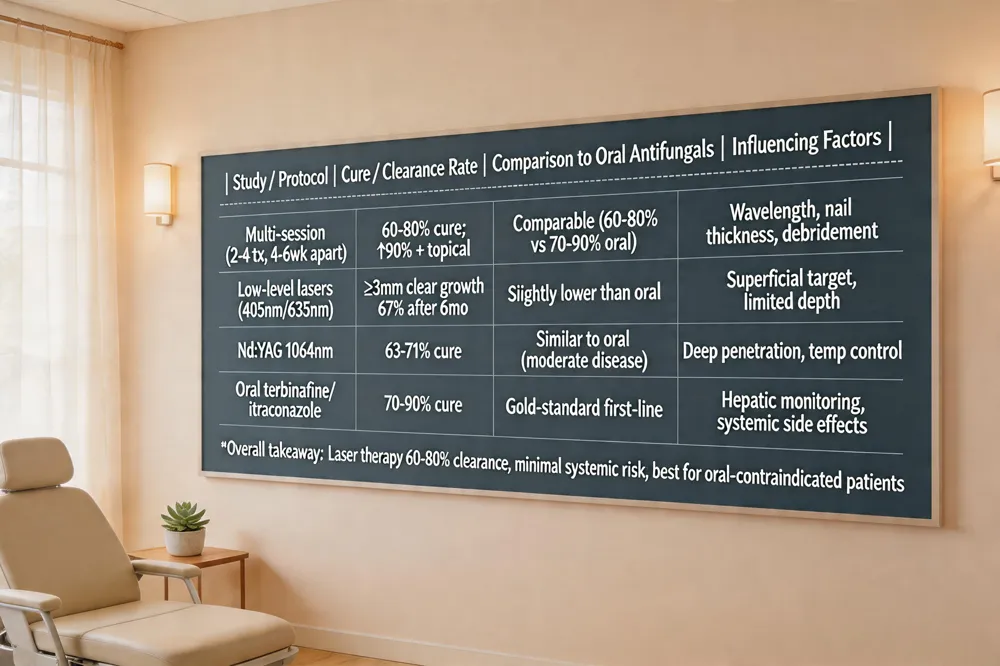 | Study / Protocol | Cure / Clearance Rate | Comparison to Oral Antifungals | Influencing Factors |
Multi-session
(2-4 tx, 4-6wk apart)
60-80% cure;
↑90% + topical
Comparable (60-80%
vs 70-90% oral)
Wavelength, nail
thickness, debridement
Low-level lasers
(405nm/635nm)
≥3mm clear growth
67% after 6mo
Slightly lower than oral
Superficial target,
limited depth
Nd:YAG 1064nm
63-71% cure
Similar to oral
(moderate disease)
Deep penetration, temp control
Oral terbinafine/
itraconazole
70-90% cure
Gold-standard first-line
Hepatic monitoring,
systemic side effects
"Overall takeaway: Laser therapy 60-80% clearance, minimal systemic risk, best for oral-contraindicated patients